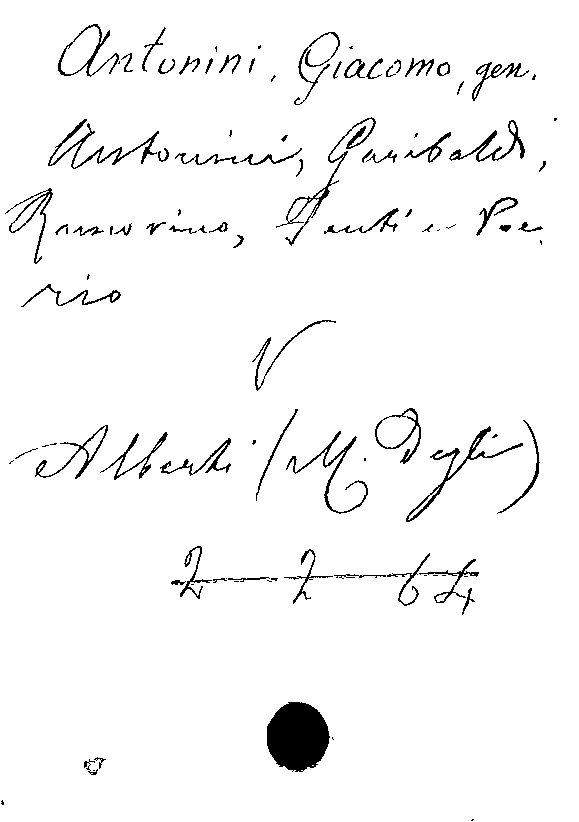 Antonini, Giacomo, gen.
Antonini, Garibaldi,
Ramorino, Fanti e Poe-
rio
V
Alberti (M. Degli)
2 2 64